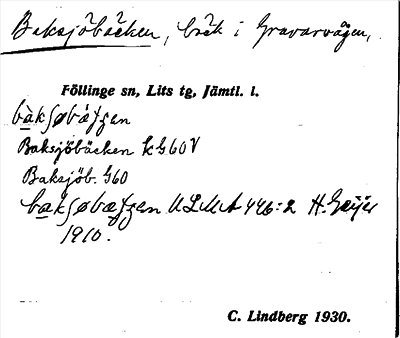 Baksjöbäcken, bäck i Gravarvågen,
Föllinge sn, Lits tg, Jämtl. l.
Baksjöbäcken k G60V
Baksjöb. G60
ULMA 446:2 H. Geijer
1910.
C. Lindberg 1930.